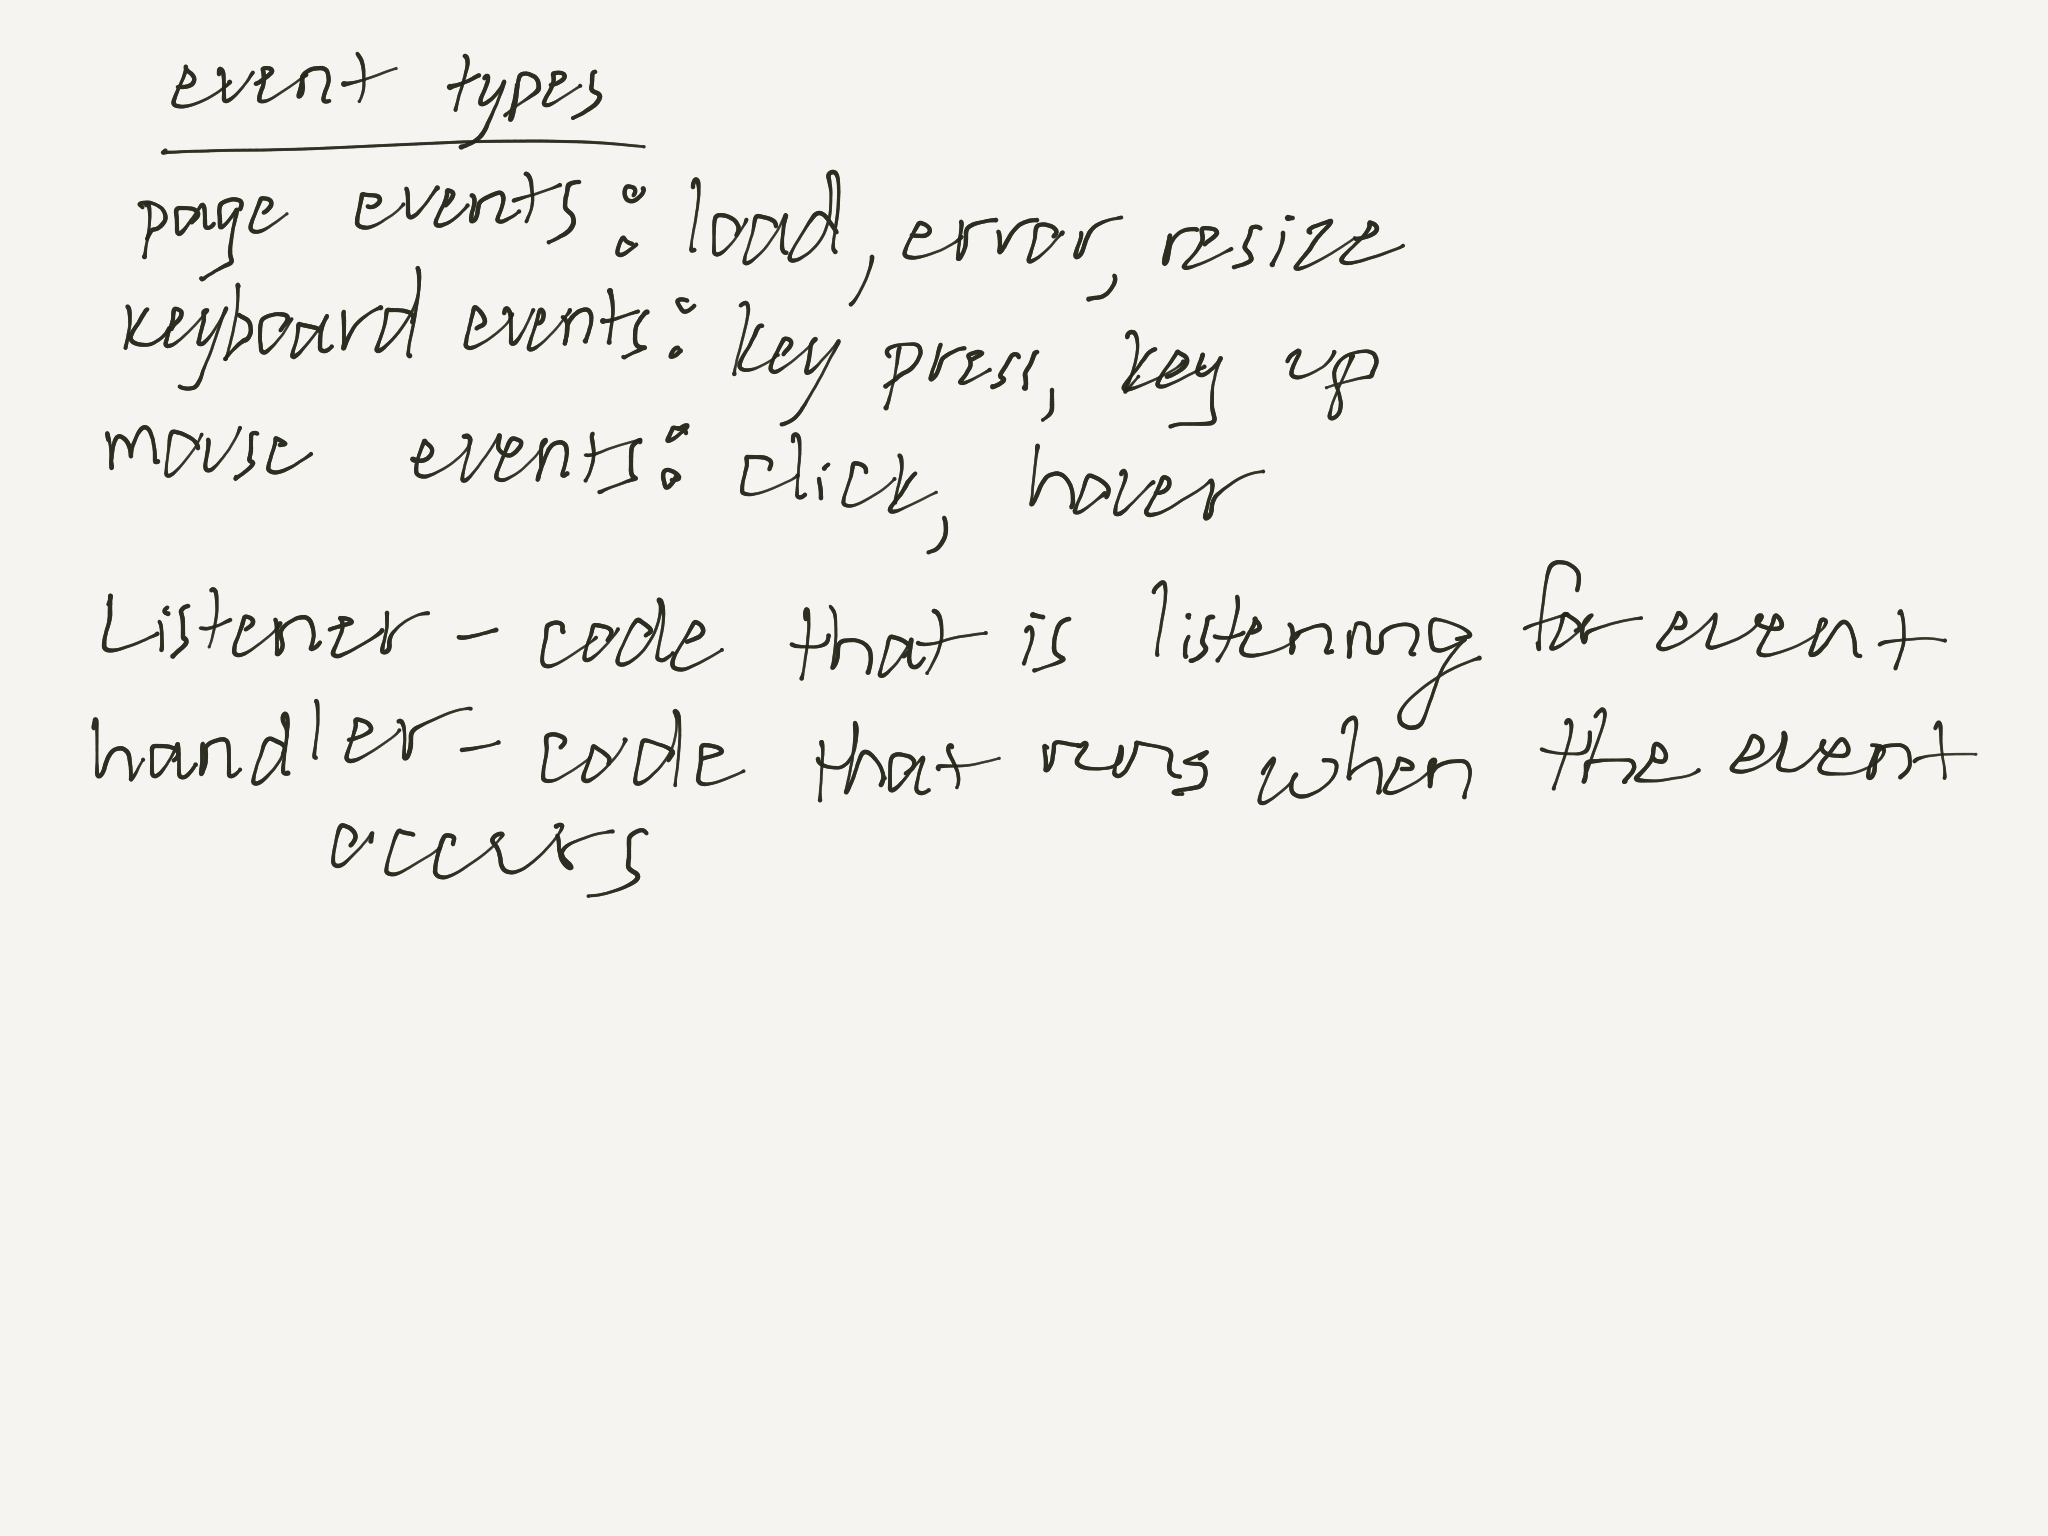 event types
page events: load, error, resize
keyboard events: key press, key up
mouse events: click, hover
Listener - code that is listening for event
handler - code that runs when the event
occurs